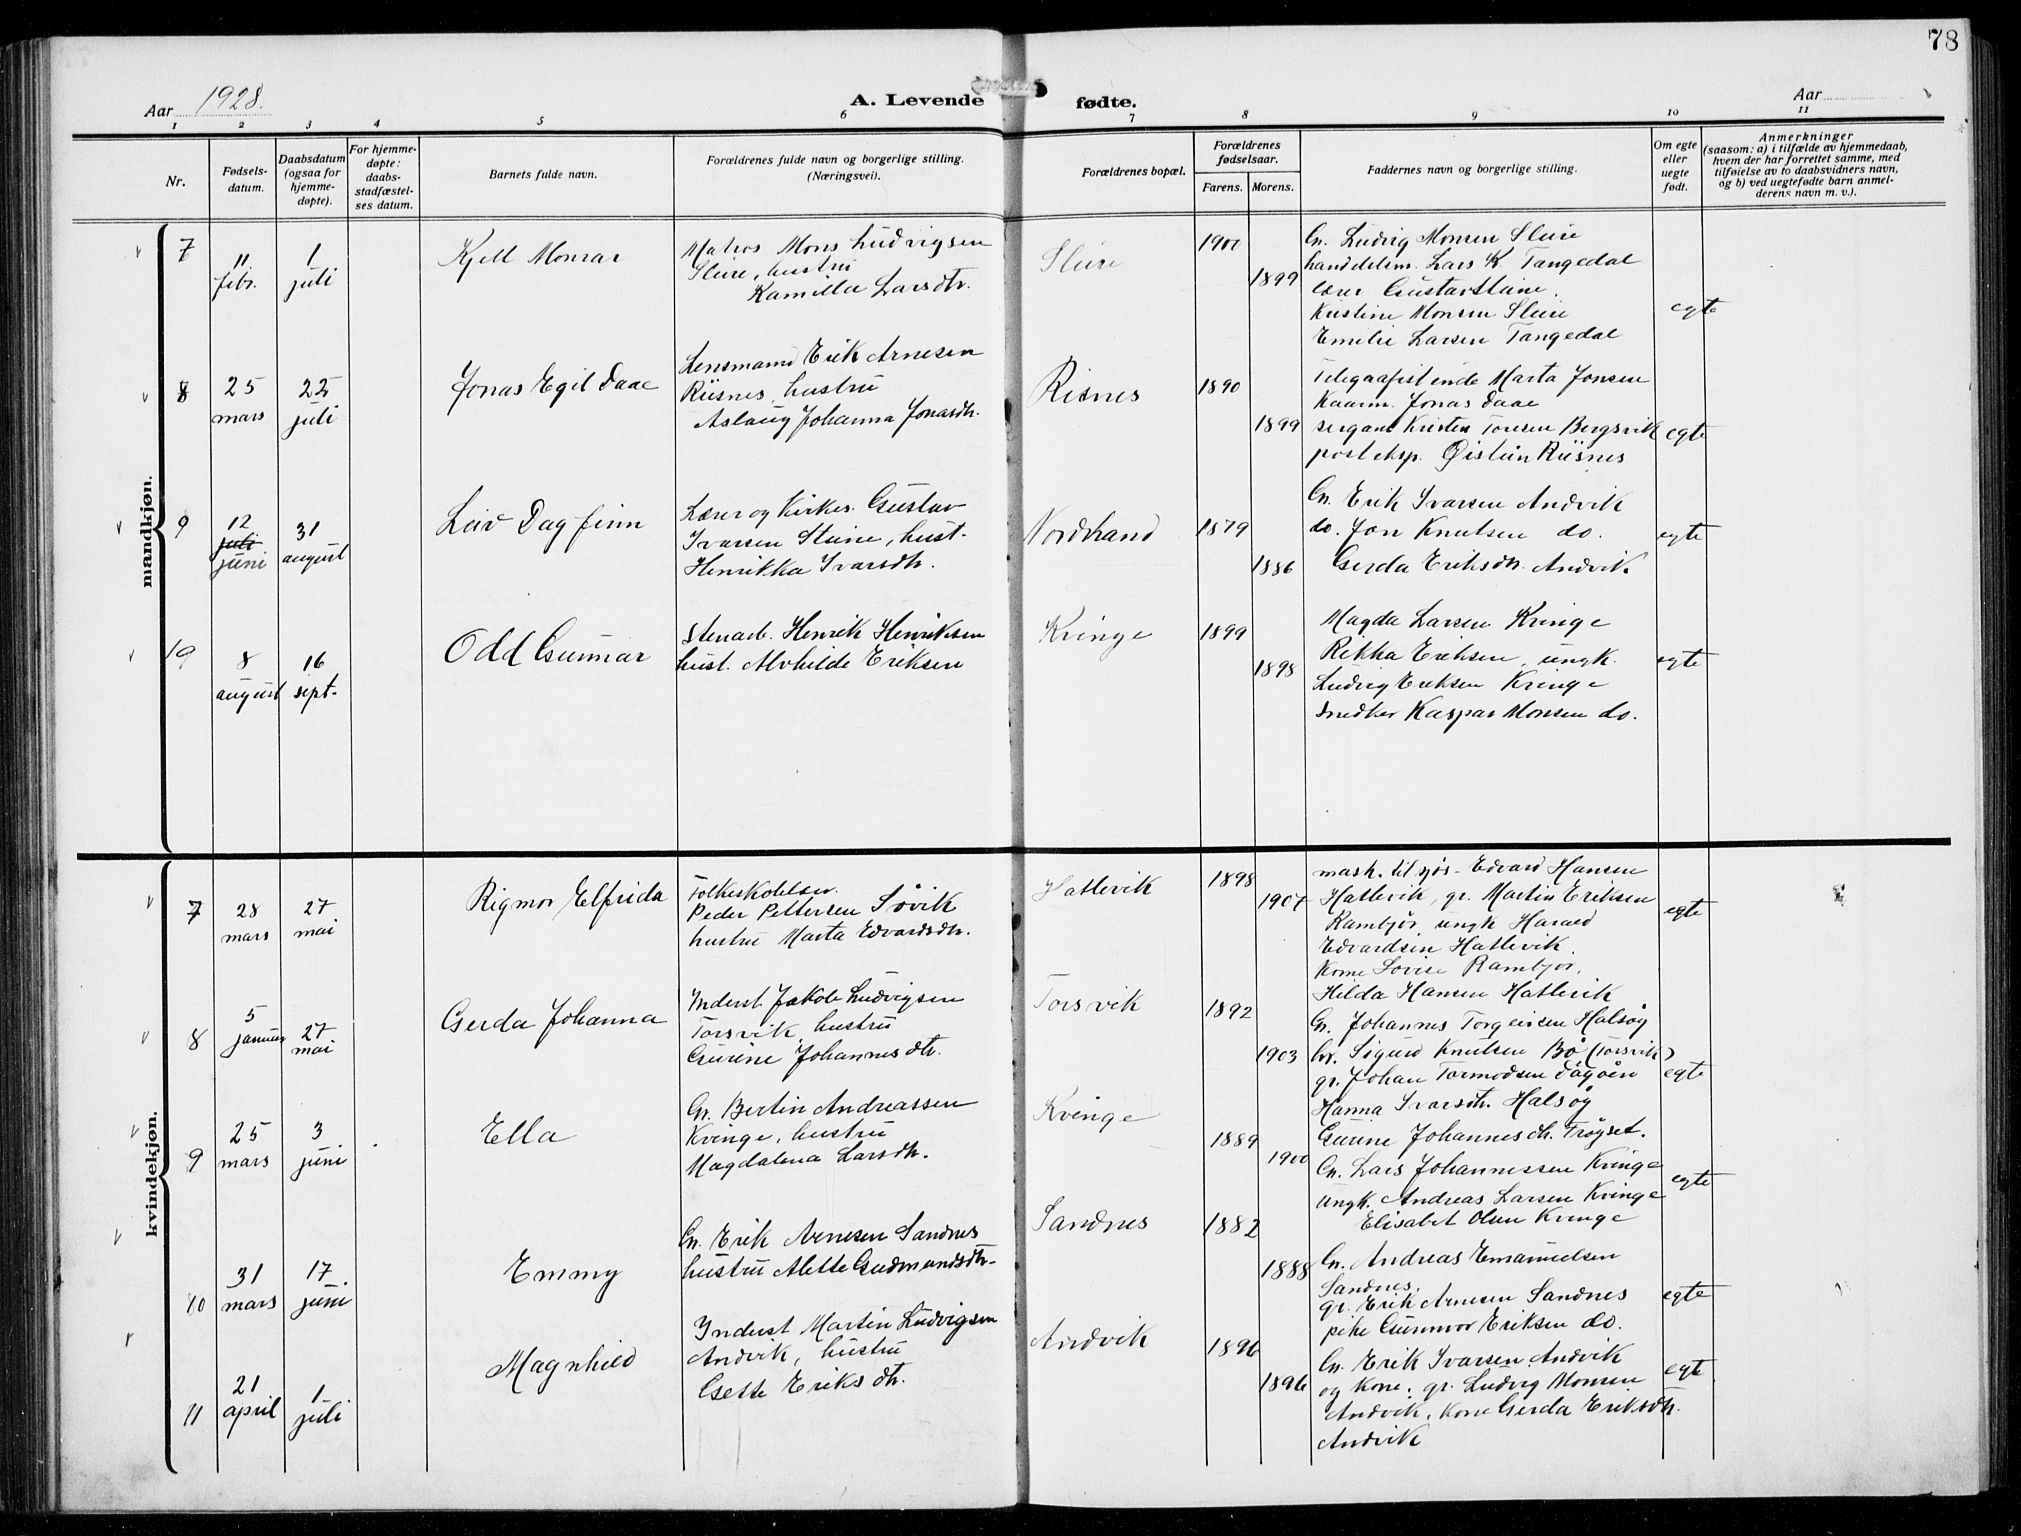 78
Aar 1928.
A. Levende fødte.
Aar
1 2 3 4 5 6 7 8 9 10 11
Nr.
Fødsels-
datum.
Daabsdatum
(ogsaa for
hjemme-
døpte).
For hjemme-
døpte:
daabs-
stadfæstel-
ses datum.
Barnets fulde navn.
Forældrenes fulde navn og borgerlige stilling.
(Næringsvei).
Forældrenes bopæl.
Forældrenes
fødselsaar.
Farens. Morens.
Faddernes navn og borgerlige stilling.
Om egte
eller
uegte
født.
Anmerkninger
(saasom: a) i tilfælde av hjemmedaab,
hvem der har forrettet samme, med
tilføielse av to daabsvidners navn,
og b) ved uegtefødte barn anmel-
derens navn m. v.).
mandkjøn.
7
11
febr.
1
juli
Kjell Monrar
Matros Mons Ludvigsen
Sleire, hustru
Kamilla Larsdtr.
Sleire
1900
1899
Gr. Ludvig Monsen Sleire
handelsm. Lars K. Tangedal
lærer Gustav Stene.
Kristine Monsen Sleire
Emilie Larsen Tangedal
egte
8
25
mars
22
juli
Jonas Egil Daae
Lensmand Erik Arnesen
Riisnes, hustru
Aslaug Johanna Jonasdtr.
Risnes
1890
1899
Telegrafistinde Marta Jonsen
Kaarm. Jonas Daae
sergant Kristen Toresen Bergsvik
posteksp. Øistein Riisnes
egte
9
12
juli
juni
31
august
Leiv Dagfinn
Lærer og Kirkes. Gustav
Ivarsen Steine, hust.
Henrikka Ivarsdtr.
Nordstrand
1879
1886
Gr. Erik Ivarsen Andvik
do. Jon Knutsen do.
Gerda Eriksdtr. Andvik
egte
10
8
august
16
sept.
Odd Gunnar
Stenarb. Henrik Henriksen
hust. Alvhilde Eriksen
Kvinge
1899
1898
Magda Larsen Kvinge
Rikka Eriksen, ungk.
Ludvig Eriksen Kvinge
Snedker Kaspar Monsen do.
egte
kvindekjøn.
7
28
mars
27
mai
Rigmor Elfrida
Folkeskolelær.
Peder Pettersen Søvik
hustru Marta Edvardsdtr.
Hatlevik
1898
1907
mask. til sjøs Edvard Hansen
Hatlevik, gr. Martin Eriksen
Rambjør, ungk Harald
Edvardsen Hatlevik,
Kone Lovise Rambjør,
Hilda Hansen Hatlevik
egte
8
5
januar
27
mai
Gerda Johanna
Inderst Jakob Ludvigsen
Torsvik, hustru
Gurine Johannesdtr.
Torsvik
1892
1903
Gr. Johannes Torgersen Halsøy
br. Sigurd Knutsen Bø (Torsvik)
gr. Johan Tormodsen Dagøen
Hanna Ivarsdtr. Halsøy
Gurine Johannesdtr. Trøyset.
egte
9
25
mars
3
juni
Ella
Gr. Bertin Andreassen
Kvinge, hustru
Magdalena Larsdtr.
Kvinge
1889
1900
Gr. Lars Johannessen Kvinge
ungk. Andreas Larsen Kvinge
Elisabet Olsen Kvinge
egte
10
31
mars
17.
juni.
Emmy
Gr. Erik Arnesen Sandnes
hustru Alette Gudmundsdtr.
Sandnes
1882
1888
Gr. Andreas Emanuelsen
Sandnes,
gr. Erik Arnesen Sandnes
pike Gunnvor Eriksen do.
egte
11
21
april
1
juli
Magnhild
Inderst Martin Ludvigsen
Andvik, hustru
Gsette Eriksdtr.
Andvik
1896
1896
Gr. Erik Ivarsen Andvik
og Kone, gr. Ludvig Monsen
Andvik, Kone Gerda Eriksdtr.
Andvik
egte